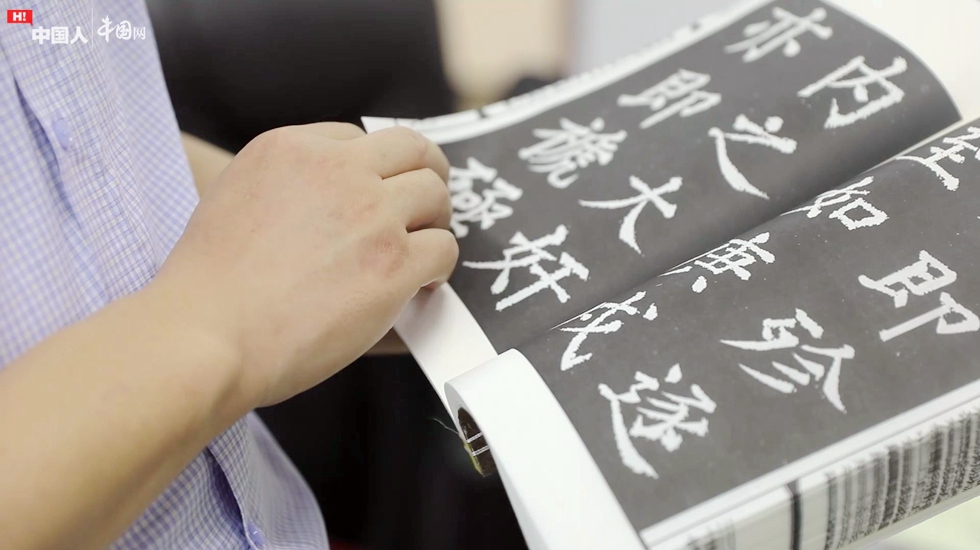 H!
中国人
中国网
即珍遂
如
成
内之大奸
亦即號極